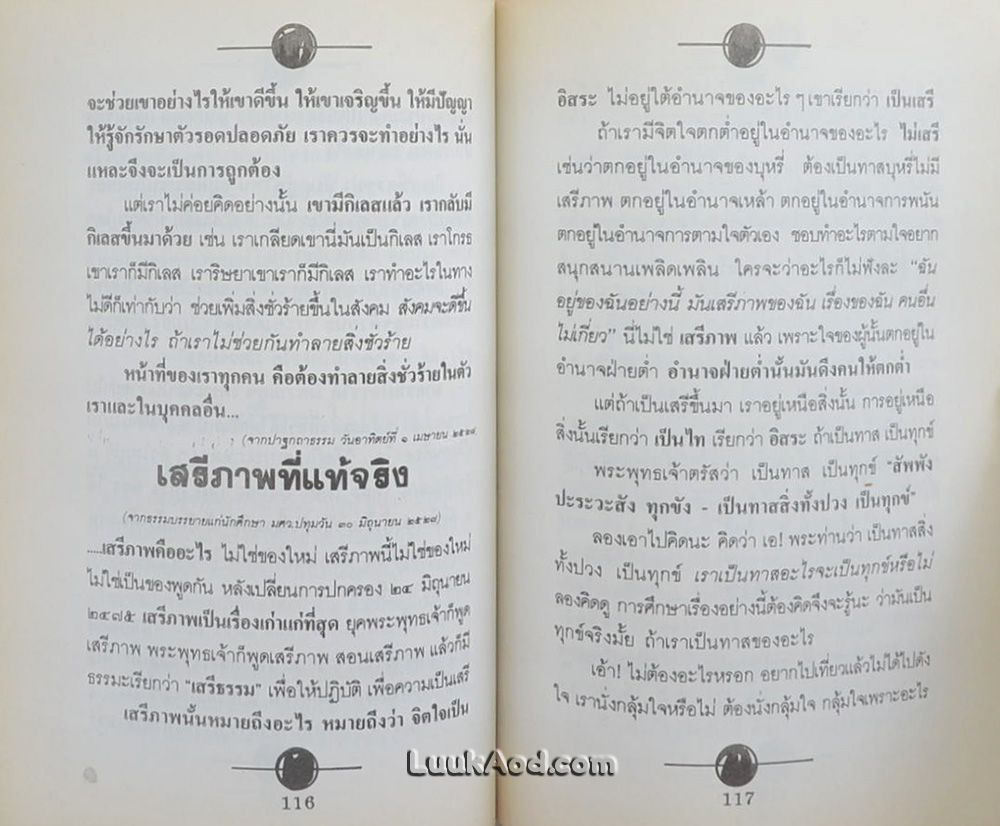 จะช่วยเขาอย่างไรให้เขาดีขึ้น ให้เขาเจริญขึ้น ให้มีปัญญา
ให้รู้จักรักษาตัวรอดปลอดภัย เราควรจะทำอย่างไร นั่น
แหละจึงจะเป็นการถูกต้อง
แต่เราไม่ค่อยคิดอย่างนั้น เขามีกิเลสแล้ว เรากลับมี
กิเลสขึ้นมาด้วย เช่น เราเกลียดเขานี่มันเป็นกิเลส เราโกรธ
เขาเราก็มีกิเลส เราริษยาเขาเราก็มีกิเลส เราทำอะไรในทาง
ไม่ดีก็เท่ากับว่า ช่วยเพิ่มสิ่งชั่วร้ายขึ้นในสังคม สังคมจะดีขึ้น
ได้อย่างไร ถ้าเราไม่ช่วยกันทำลายสิ่งชั่วร้าย
หน้าที่ของเราทุกคน คือต้องทำลายสิ่งชั่วร้ายในตัว
เราและในบุคคลอื่น...
(จากปาฐกถาธรรม วันอาทิตย์ที่ ๑ เมษายน ๒๕๒๘
เสรีภาพที่แท้จริง
(จากธรรมบรรยายแก่นักศึกษา มศว.ปทุมวัน ๓๐ มิถุนายน ๒๕๒๘)
.....เสรีภาพคืออะไร ไม่ใช่ของใหม่ เสรีภาพนี้ไม่ใช่ของใหม่
ไม่ใช่เป็นของพูดกัน หลังเปลี่ยนการปกครอง ๒๔ มิถุนายน
๒๔๗๕ เสรีภาพเป็นเรื่องเก่าแก่ที่สุด ยุคพระพุทธเจ้าก็พูด
เสรีภาพ พระพุทธเจ้าก็พูดเสรีภาพ สอนเสรีภาพ แล้วก็มี
ธรรมะเรียกว่า "เสรีธรรม" เพื่อให้ปฏิบัติ เพื่อความเป็นเสรี
เสรีภาพนั้นหมายถึงอะไร หมายถึงว่า จิตใจเป็น
116
อิสระ ไม่อยู่ใต้อำนาจของอะไร ๆ เขาเรียกว่า เป็นเสรี
ถ้าเรามีจิตใจตกต่ำอยู่ในอำนาจของอะไร ไม่เสรี
เช่นว่าตกอยู่ในอำนาจของบุหรี่ ต้องเป็นทาสบุหรี่ไม่มี
เสรีภาพ ตกอยู่ในอำนาจเหล้า ตกอยู่ในอำนาจการพนัน
ตกอยู่ในอำนาจการตามใจตัวเอง ชอบทำอะไรตามใจอยาก
สนุกสนานเพลิดเพลิน ใครจะว่าอะไรก็ไม่ฟังละ "ฉัน
อยู่ของฉันอย่างนี้ มันเสรีภาพของฉัน เรื่องของฉัน คนอื่น
ไม่เกี่ยว" นี่ไม่ใช่ เสรีภาพ แล้ว เพราะใจของผู้นั้นตกอยู่ใน
อำนาจฝ่ายต่ำ อำนาจฝ่ายต่ำนั้นมันดึงคนให้ตกต่ำ
แต่ถ้าเป็นเสรีขึ้นมา เราอยู่เหนือสิ่งนั้น การอยู่เหนือ
สิ่งนั้นเรียกว่า เป็นไท เรียกว่า อิสระ ถ้าเป็นทาส เป็นทุกข์
พระพุทธเจ้าตรัสว่า เป็นทาส เป็นทุกข์ "สัพพัง
ปะระวะสัง ทุกขัง - เป็นทาสสิ่งทั้งปวง เป็นทุกข์"
ลองเอาไปคิดนะ คิดว่า เอ! พระท่านว่า เป็นทาสสิ่ง
ทั้งปวง เป็นทุกข์ เราเป็นทาสอะไรจะเป็นทุกข์หรือไม่
ลองคิดดู การศึกษาเรื่องอย่างนี้ต้องคิดจึงจะรู้นะ ว่ามันเป็น
ทุกข์จริงมั้ย ถ้าเราเป็นทาสของอะไร
เอ้า! ไม่ต้องอะไรหรอก อยากไปเที่ยวแล้วไม่ได้ไปดัง
ใจ เรานั่งกลุ้มใจหรือไม่ ต้องนั่งกลุ้มใจ กลุ้มใจเพราะอะไร
117
LuukAod.com